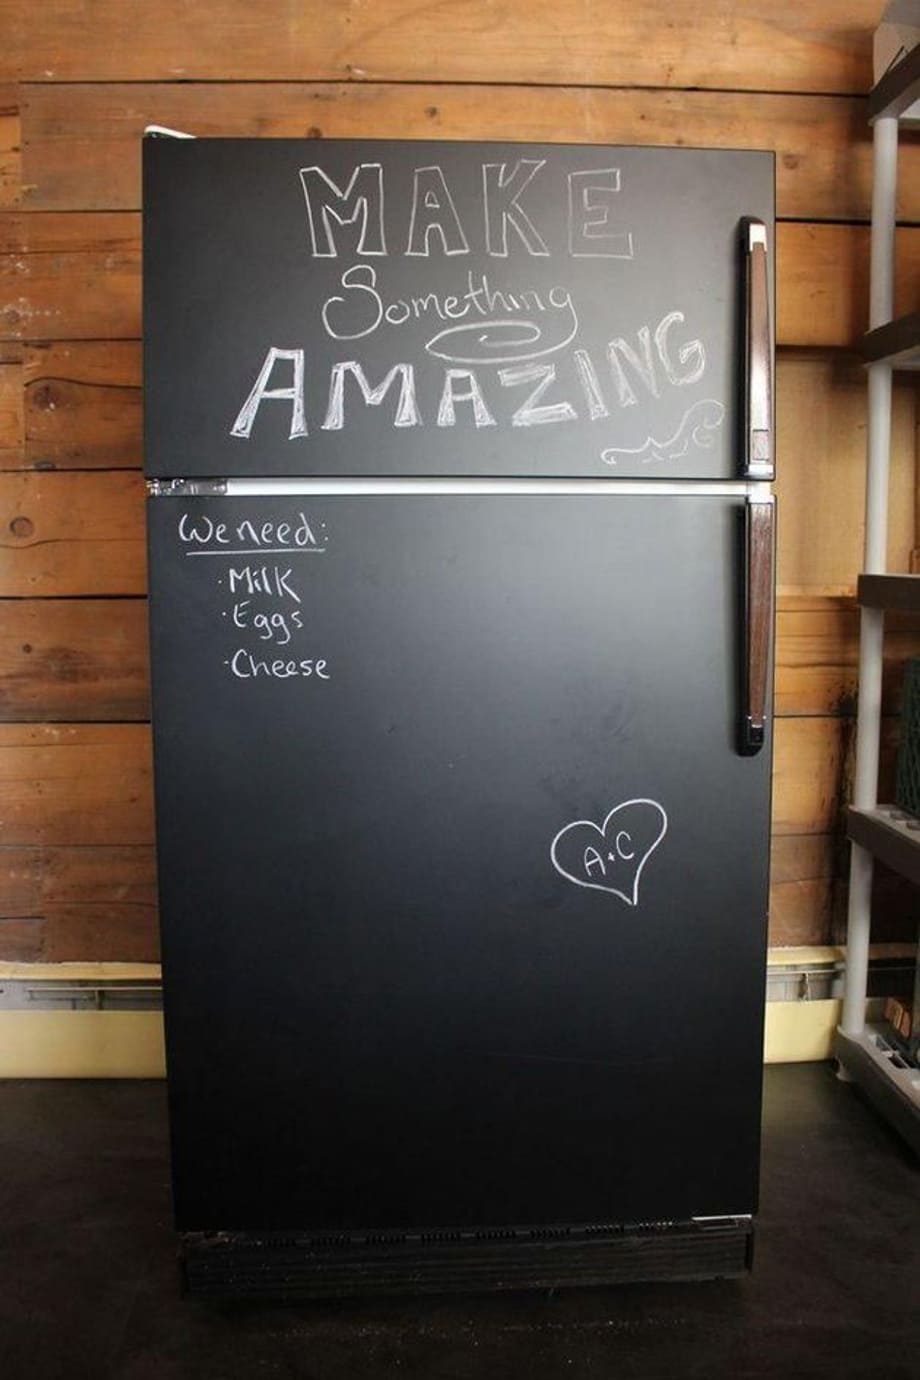 MAKE
Something
AMAZING
We need:
· Milk
· Eggs
· Cheese
A+C